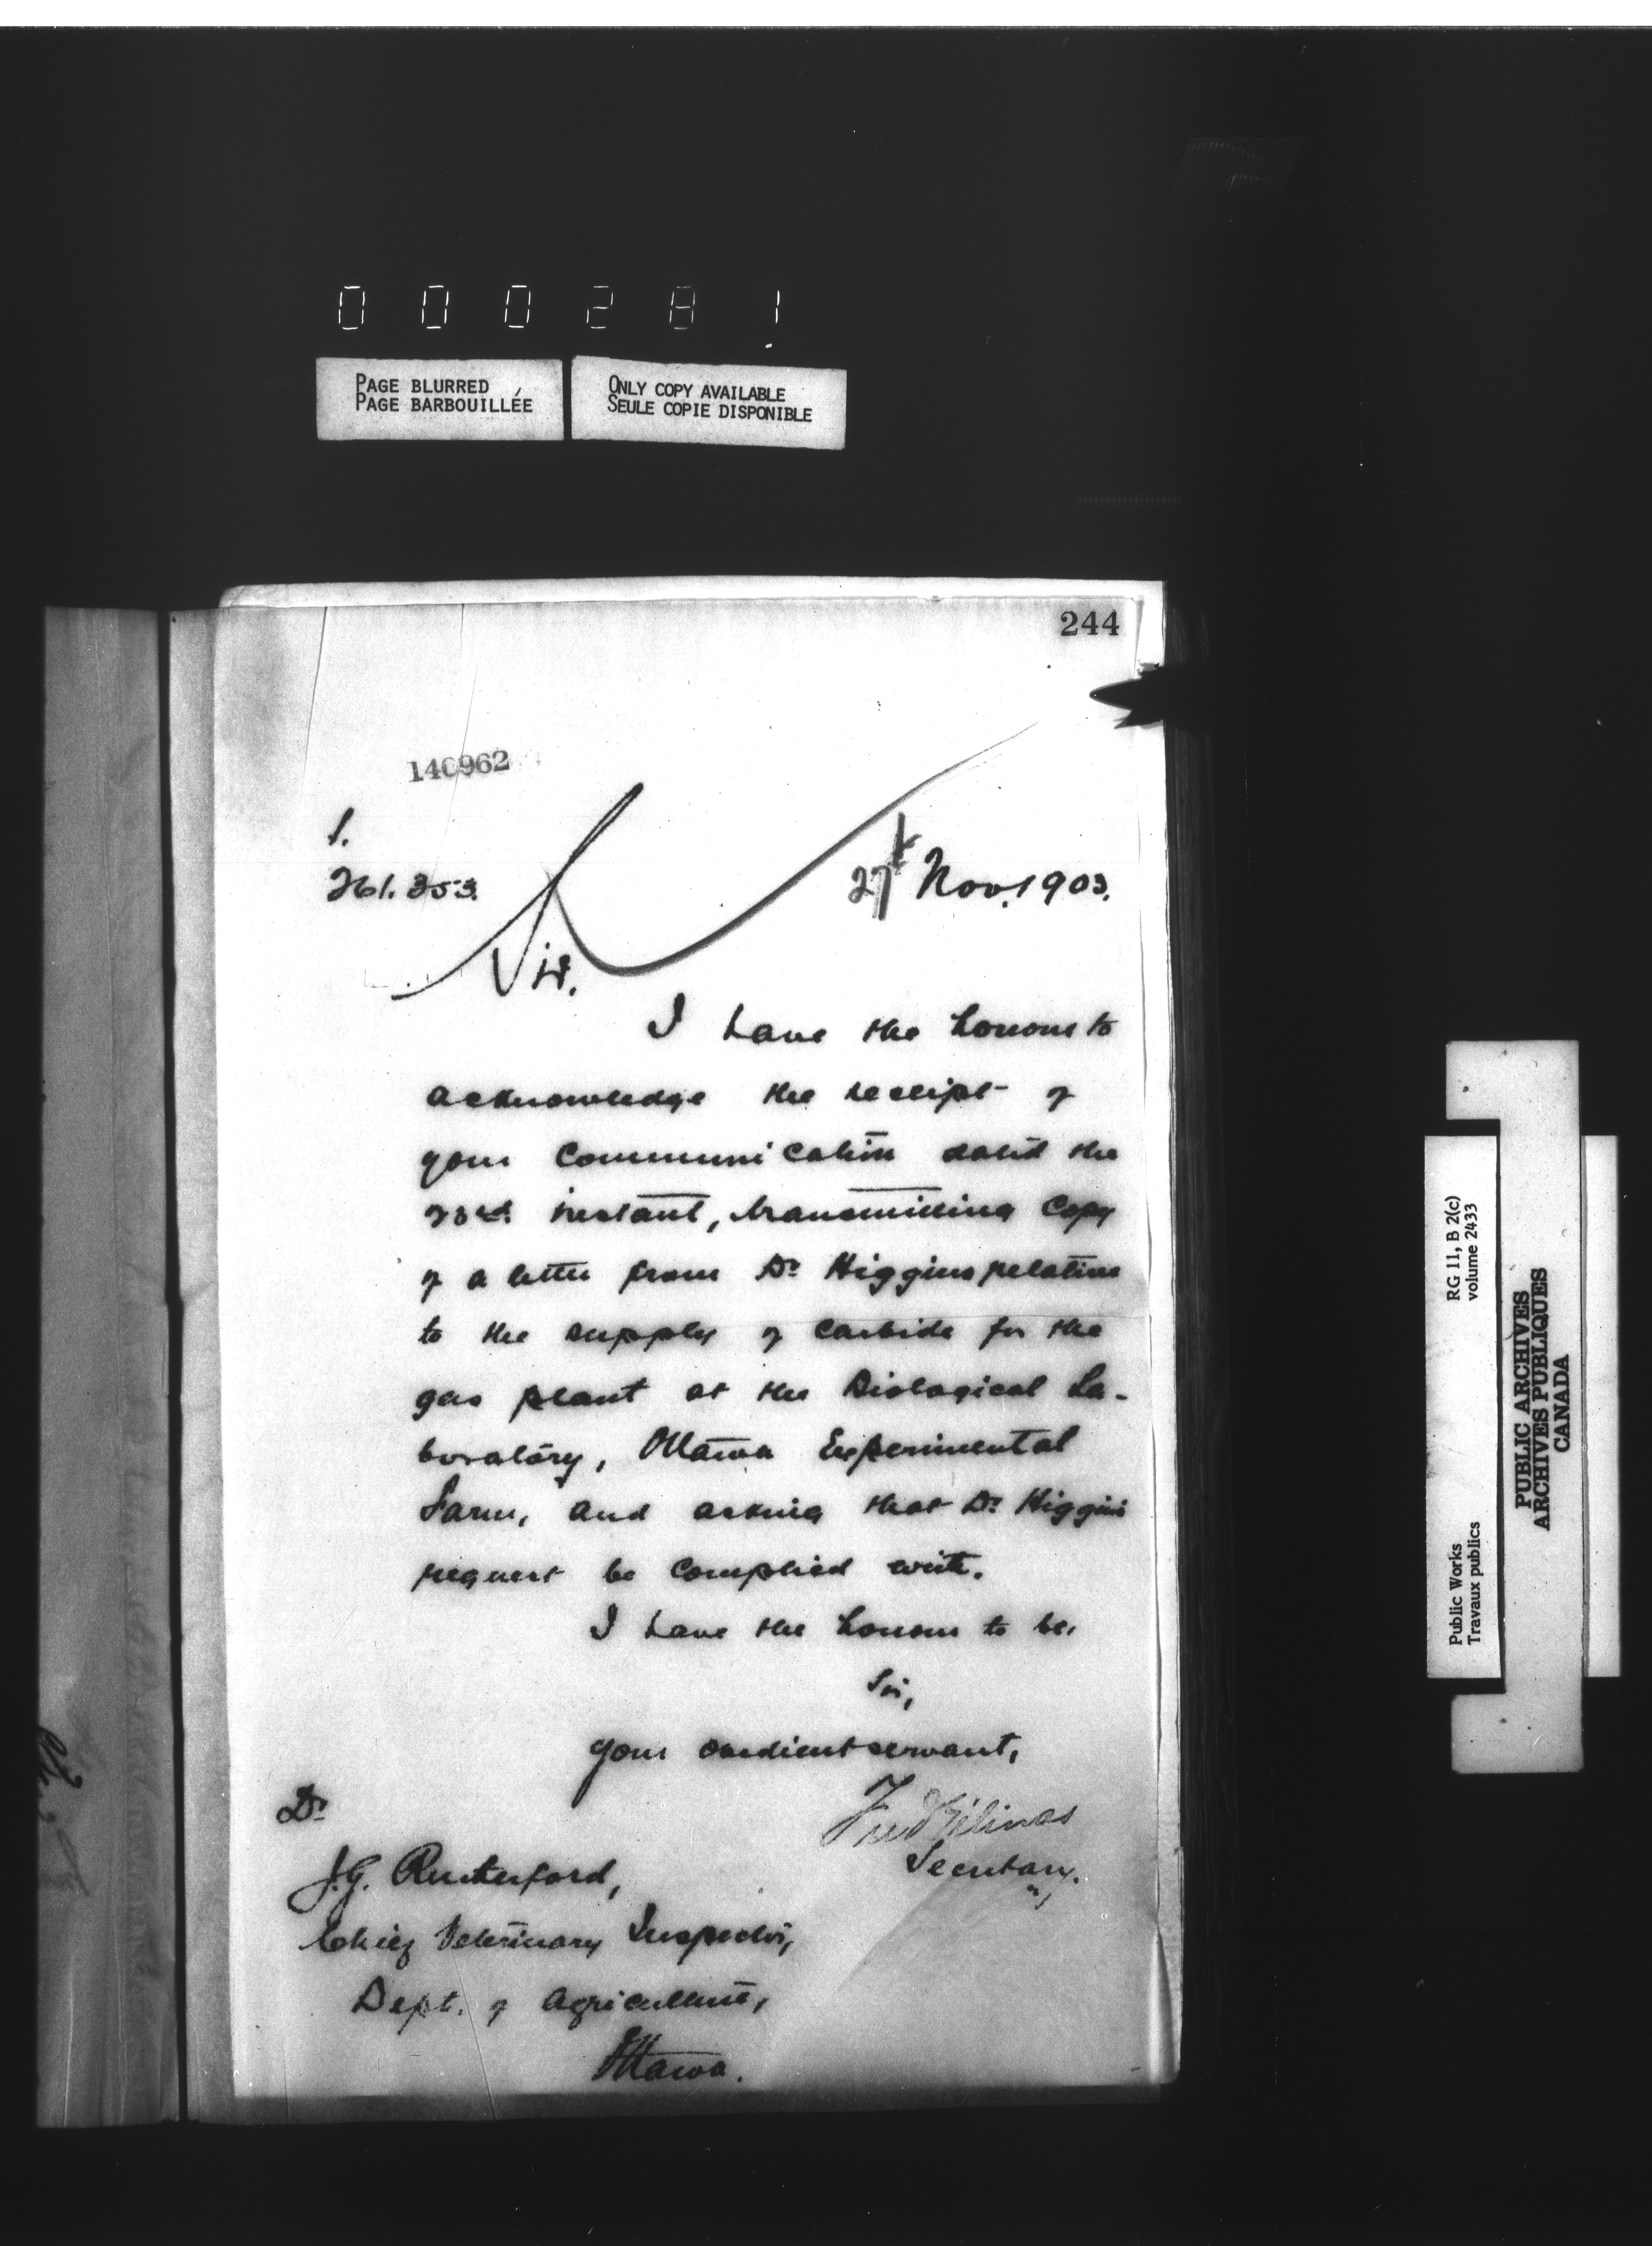 000281
PAGE BLURRED
PAGE BARBOUILLÉE
ONLY COPY AVAILABLE
SEULE COPIE DISPONIBLE
244
140962
1.
261.353.
27th Nov. 1903.
Sir.
I have the honour to
acknowledge the receipt of
your communication dated the
23rd. instant, transmitting copy
of a letter from Dr Higgins relative
to the supply of carbide for the
gas plant at the Biological La-
boratory, Ottawa Experimental
Farm, and asking that Dr Higgins
request be complied with.
I have the honour to be,
Sir,
your obedient servant,
Fred Gélinas
Secretary.
Dr
J.G. Rutherford,
Chief Veterinary Inspector,
Dept. of Agriculture,
Ottawa.
RG 11, B 2(c)
volume 2433
Public Works
Travaux publics
PUBLIC ARCHIVES
ARCHIVES PUBLIQUES
CANADA